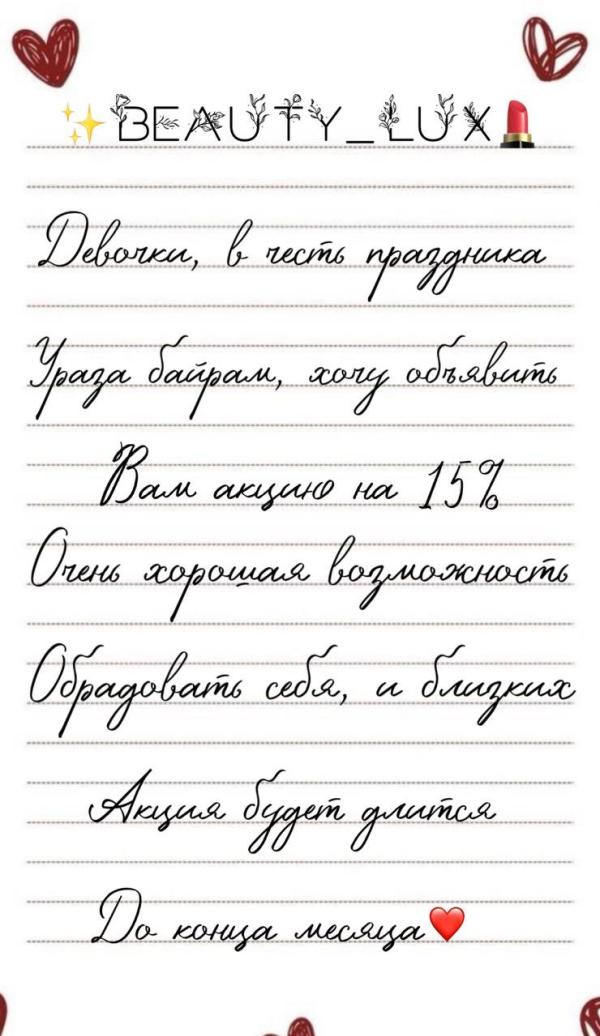 ✨BEAUTY_LUX💄
Девочки, в честь праздника
Ураза байрам, хочу объявить
Вам акцию на 15%
Очень хорошая возможность
Обрадовать себя, и близких
Акция будет длится
До конца месяца❤️